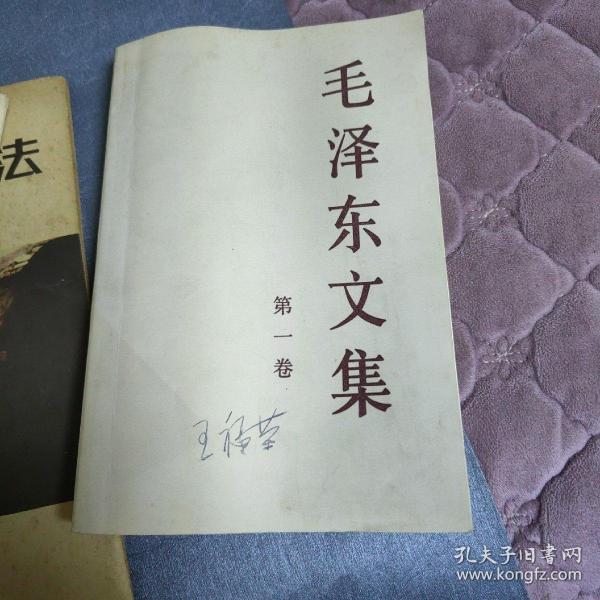 毛泽东文集
第一卷
王福荣
法
孔夫子旧书网
www.kongfz.com